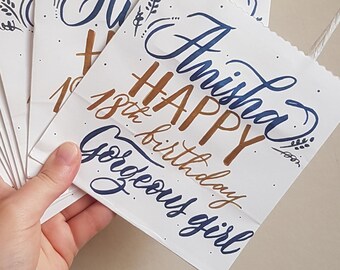 Anisha
HAPPY
18th birthday
Gorgeous girl